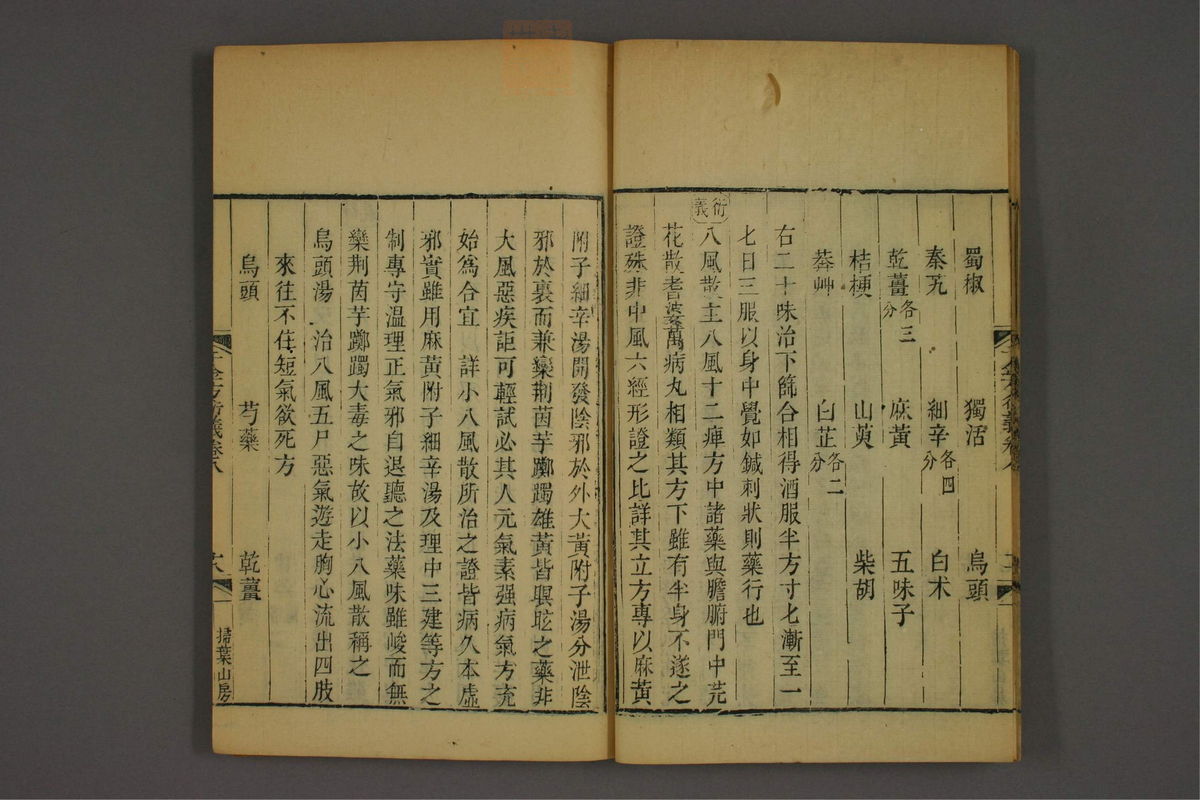 蜀椒 獨活 烏頭
秦艽 細辛各四分 白术
乾薑各三分 麻黃 五味子
桔梗 山萸 柴胡
莽艸 白芷各二分
右二十味治下篩合相得酒服半方寸匕漸至一
匕日三服以身中覺如鍼刺狀則藥行也
衍義
八風散主八風十二痺方中諸藥與膽腑門中芫
花散耆婆萬病丸相類其方下雖有半身不遂之
證殊非中風六經形證之比詳其立方專以麻黃
附子細辛湯開發陰邪於外大黃附子湯分泄陰
邪於裏而兼欒荆茵芋躑躅雄黃皆瞑眩之藥非
大風惡疾詎可輕試必其人元氣素强病氣方充
始爲合宜 詳小八風散所治之證皆病久本虛
邪實雖用麻黃附子細辛湯及理中三建等方之
制專守溫理正氣邪自退聽之法藥味雖峻而無
欒荆茵芋躑躅大毒之味故以小八風散稱之
烏頭湯 治八風五尸惡氣遊走胸心流出四肢
來往不住短氣欲死方
烏頭 芍藥 乾薑
千金方衍義卷八
掃葉山房